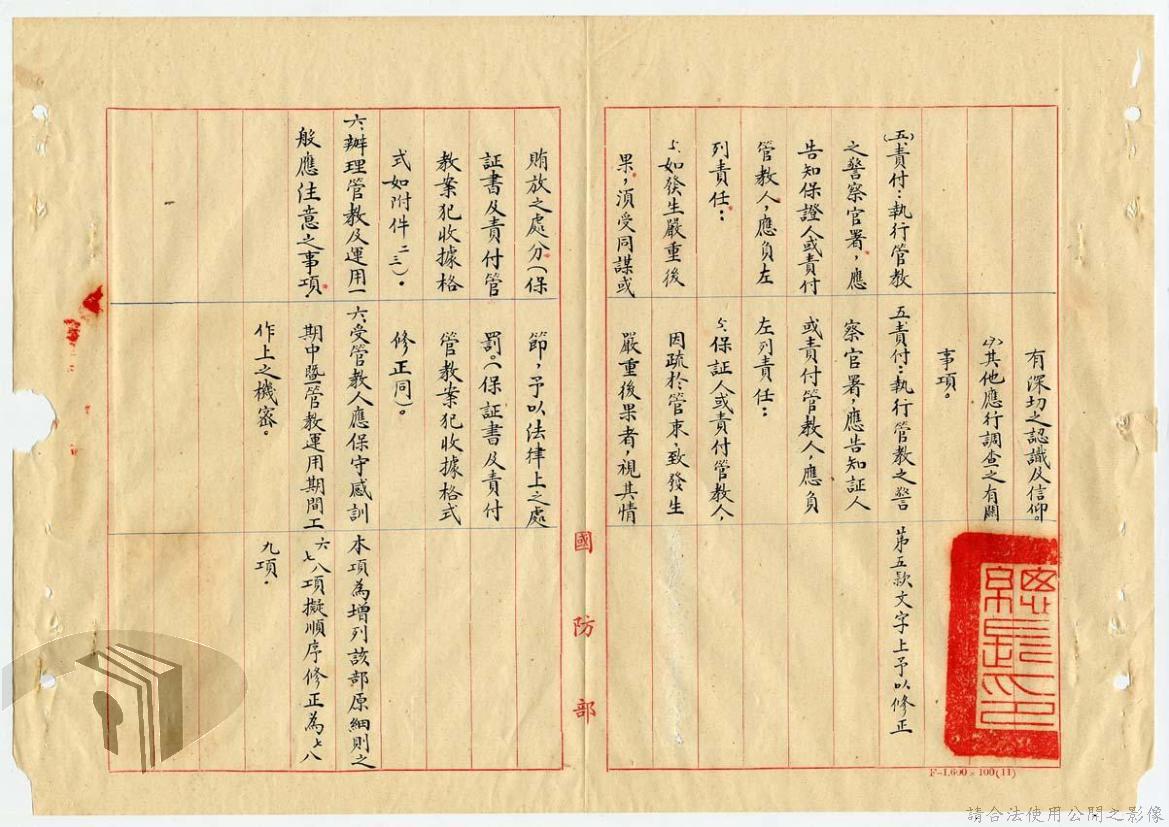 (五)責付：執行管教
之警察官署，應
告知保證人或責付
管教人，應負左
列責任：
如發生嚴重後
果，須受同謀或
賄放之處分（保
証書及責付管
教案犯收據格
式如附件二三）。
六、辦理管教及運用一
般應注意之事項。
有深切之認識及信仰。
其他應行調查之有關
事項。
五責付：執行管教之警
察官署，應告知証人
或責付管教人，應負
左列責任：
保証人或責付管教人，
因疏於管束，致發生
嚴重後果者，視其情
節，予以法律上之處
罰。（保証書及責付
管教案犯收據格式
修正同）。
六、受管教人應保守感訓
期中暨管教運用期間工
作上之機密。
第五款文字上予以修正
本項為增列該部原細則之
六七八項擬順序修正為七八
九項。
國防部
F-1.600×100(11)
請合法使用公開之影像